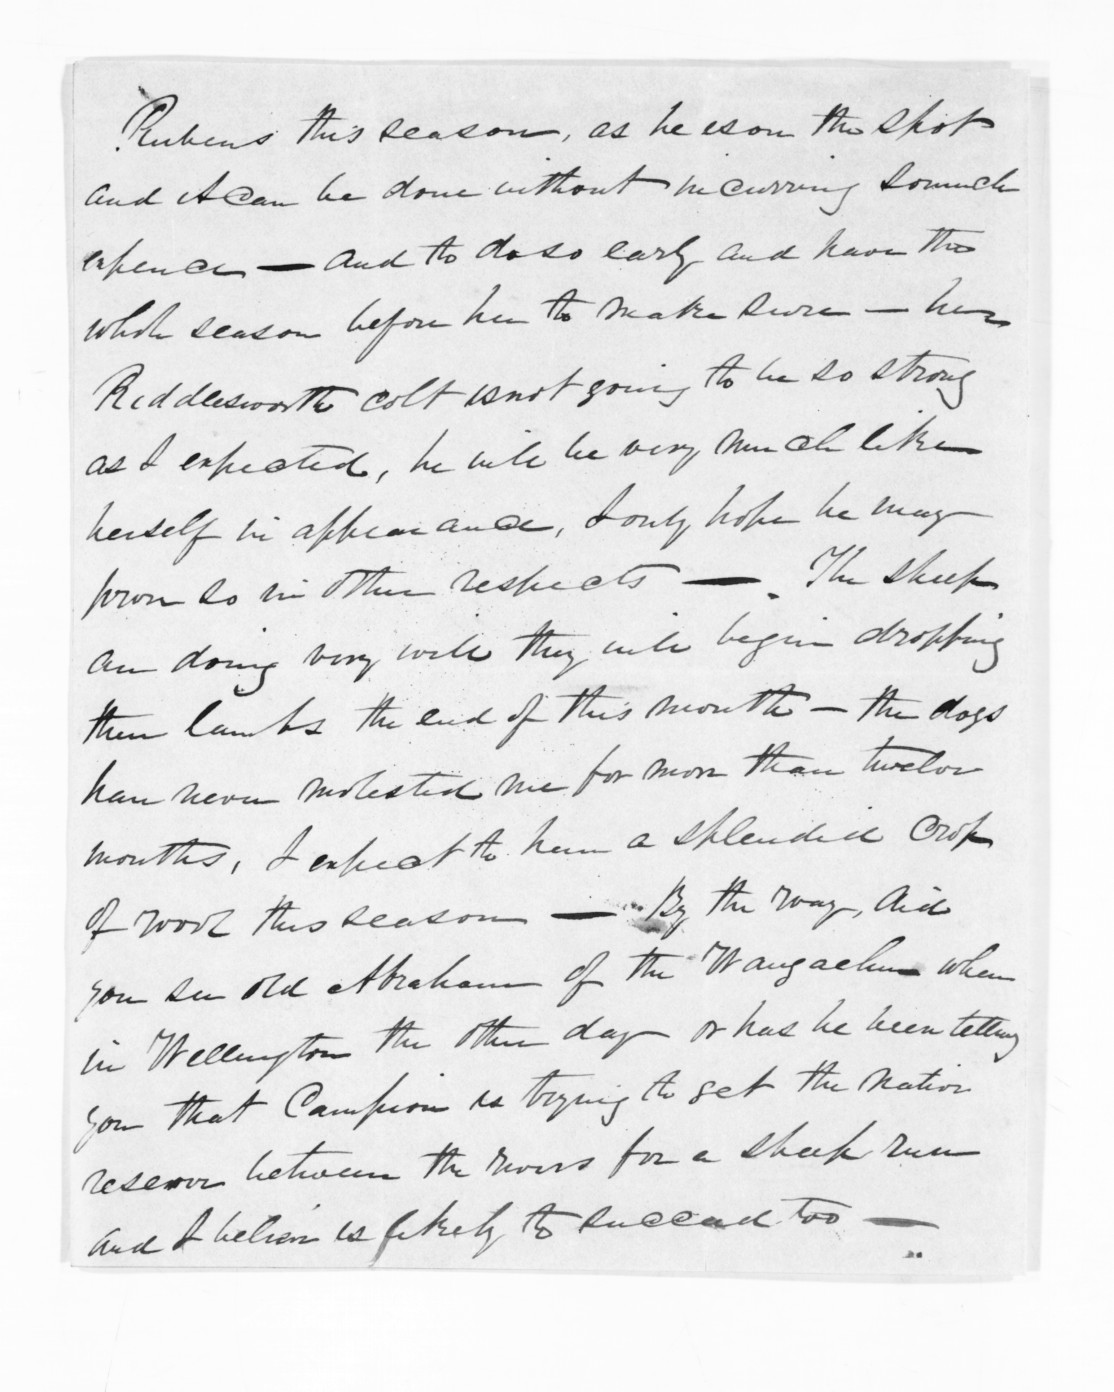 Rubens this season, as he is on the spot
and it can be done without incurring so much
expence — and to do so early and have the
whole season before her to make sure — her
Riddlesworth colt is not going to be so strong
as I expected, he will be very much like
herself in appearance, I only hope he may
prove so in other respects — . The sheep
are doing very well they will begin dropping
their lambs the end of this month — the dogs
have never molested me for more than twelve
months, I expect to have a splendid crop
of wool this season — By the way, did
you see old Abraham of the Wangaehu when
in Wellington the other day or has he been telling
you that Campion is trying to get the native
reserve between the rivers for a sheep run
and I believe is likely to succeed too —